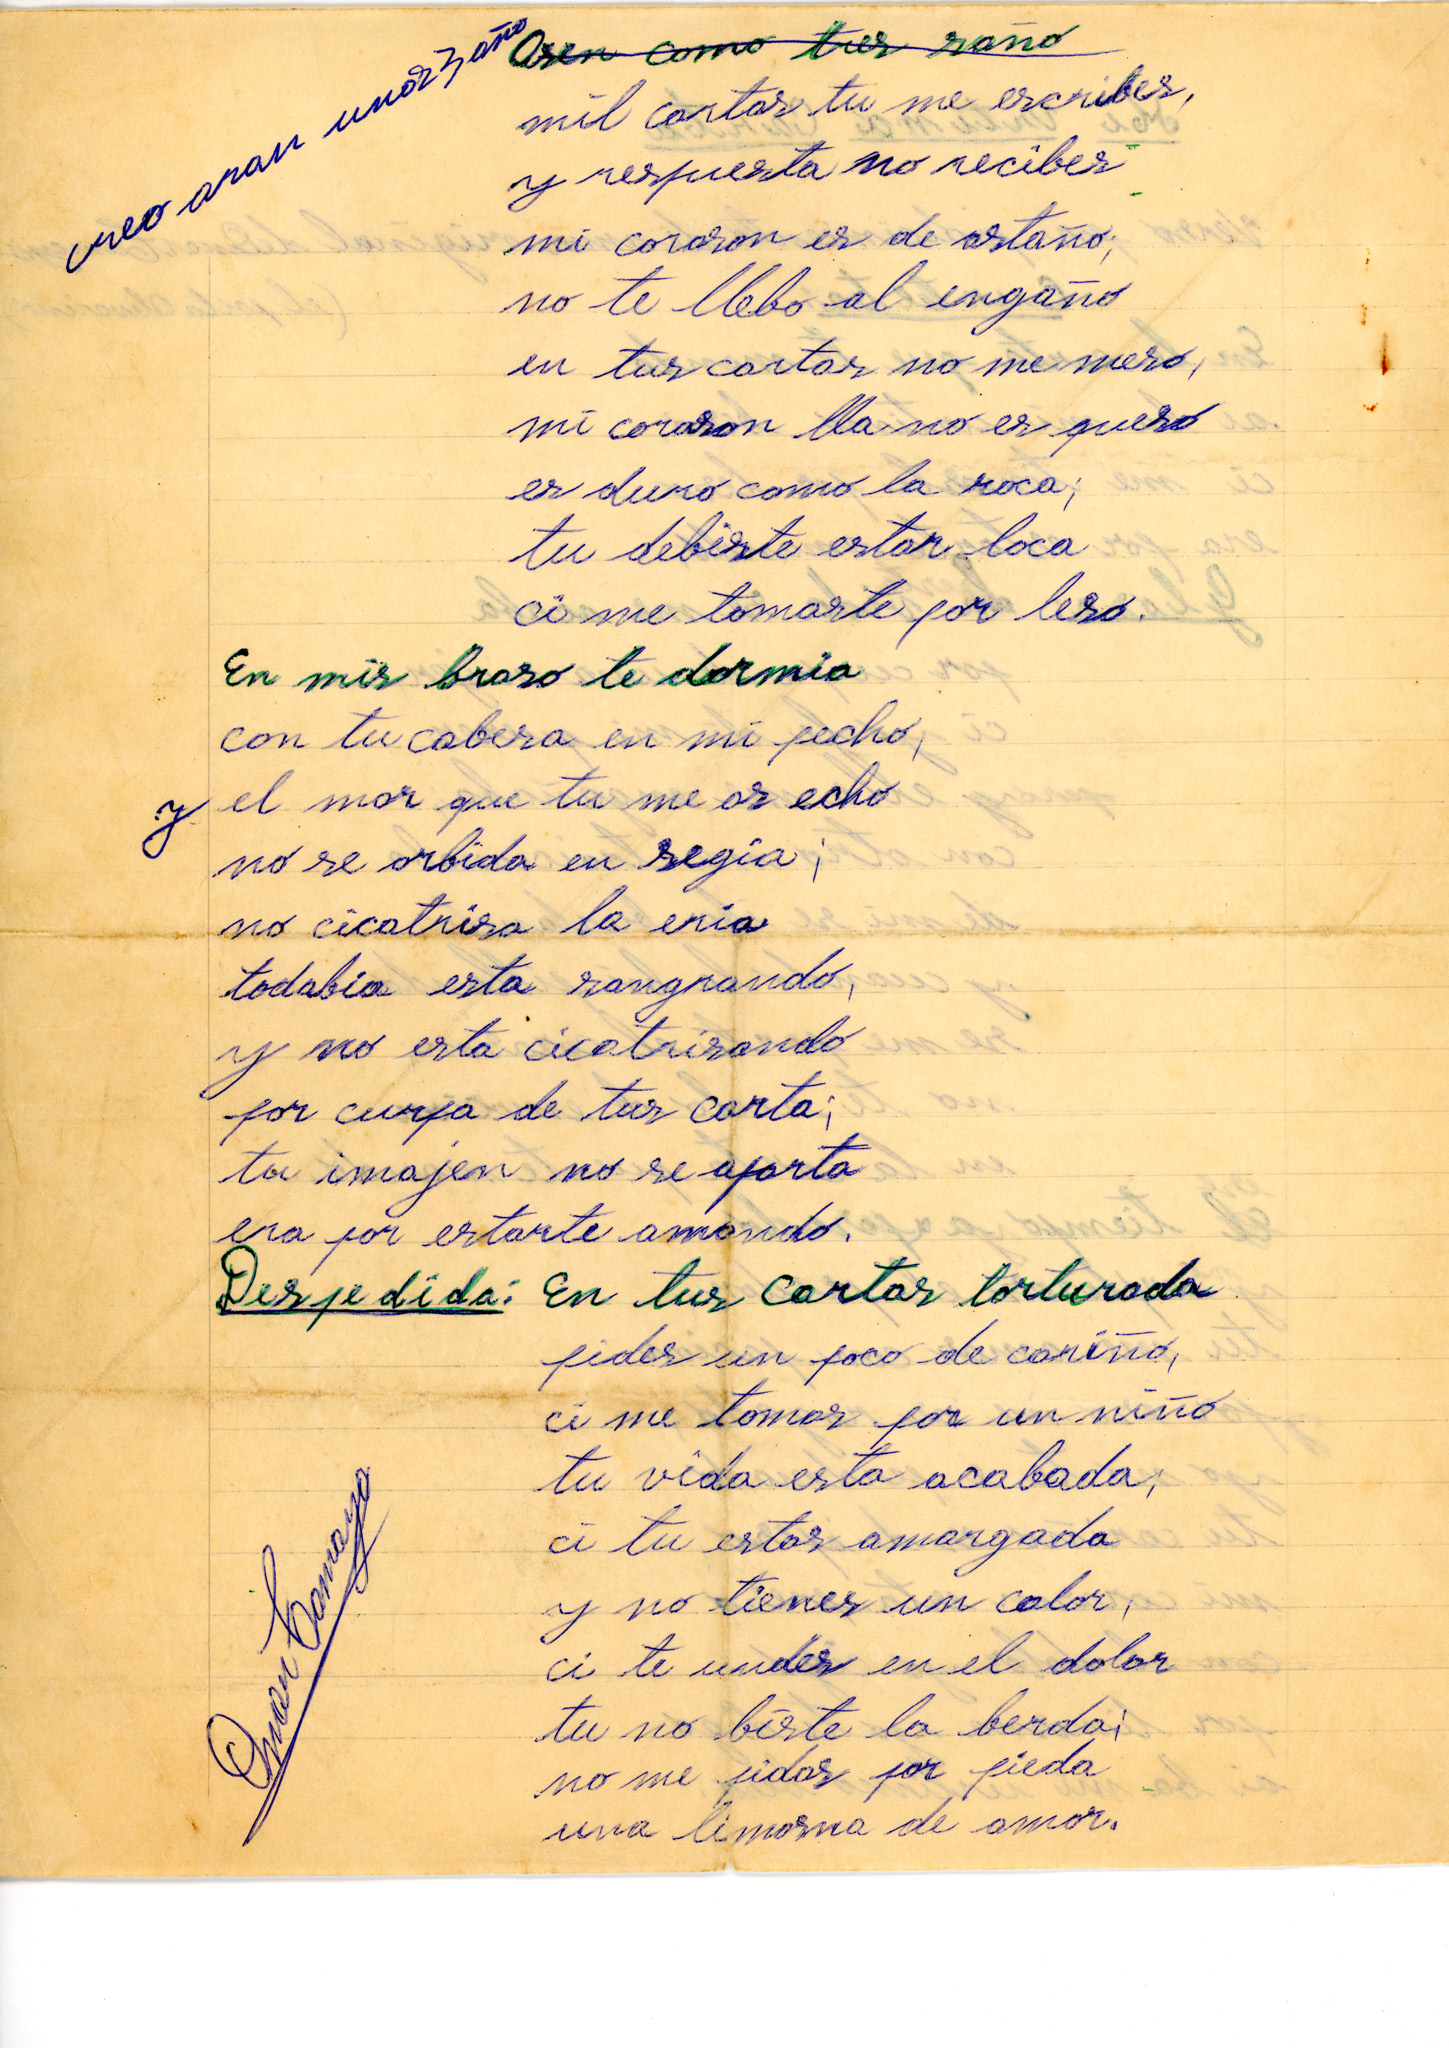 creo aran unos 3 año
Asen como tres saño
mil cartas tu me escribes,
y respuesta no recibes
mi corason es de astaño;
no te llebo al engaño
en tus cartas no me meso,
mi corason lla no es queso
es duro como la roca;
tu debiste estar loca
ci me tomaste por leso.
En mis braso te dormia
con tu cabesa en mi pecho,
y el mar que tu me as echo
no se orbida en segia;
no cicatrisa la eria
todabia esta sangrando,
y no esta cicatrisando
por curpa de tus carta;
tu imajen no se aparta
era por estarte amando.
Despedida: En tus cartas torturada
pides un poco de cariño,
ci me tomas por un niño
tu vida esta acabada;
ci tu estas amargada
y no tienes un calor,
ci te undes en el dolor
tu no biste la berda;
no me pidas por pieda
una limosna de amor.
Camayo